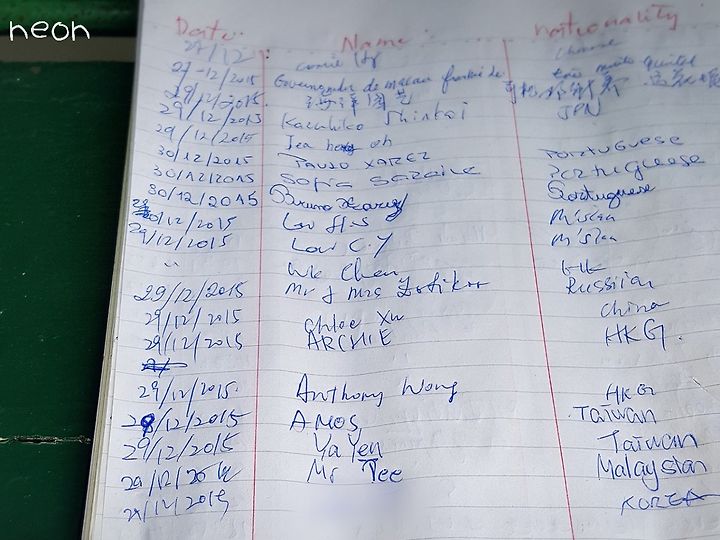 neon
Date Name nationality
27/12
27-12/2015 Governador de macau
29/12/2015 JPN
29/12/2015 Kazuhiko Shintai
29/12/2015 Jea oh Portuguese
30/12/2015 Paulo XAREZ Portuguese
30/12/2015 Sofia Portuguese
30/12/2015 Bruno Xarez M'sian
30/12/2015 Low H.S M'sian
29/12/2015 Low C.Y
" WK Chan HK
29/12/2015 Mr & Mrs Russian
29/12/2015 Chloe Xu China
29/12/2015 ARCHIE HKG.
29/12/2015. Anthony Wong HKG
29/12/2015 AMOS Taiwan
29/12/2015 Ya Yen Taiwan
29/12/2015 Mr Tee Malaysian
KOREA